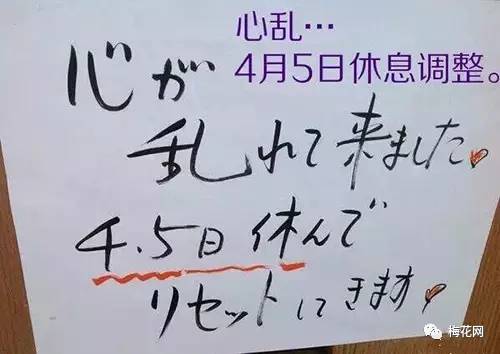 心乱…
4月5日休息调整。
心が
乱れて来ました。
4.5日休んで
リセットにきます
梅花网